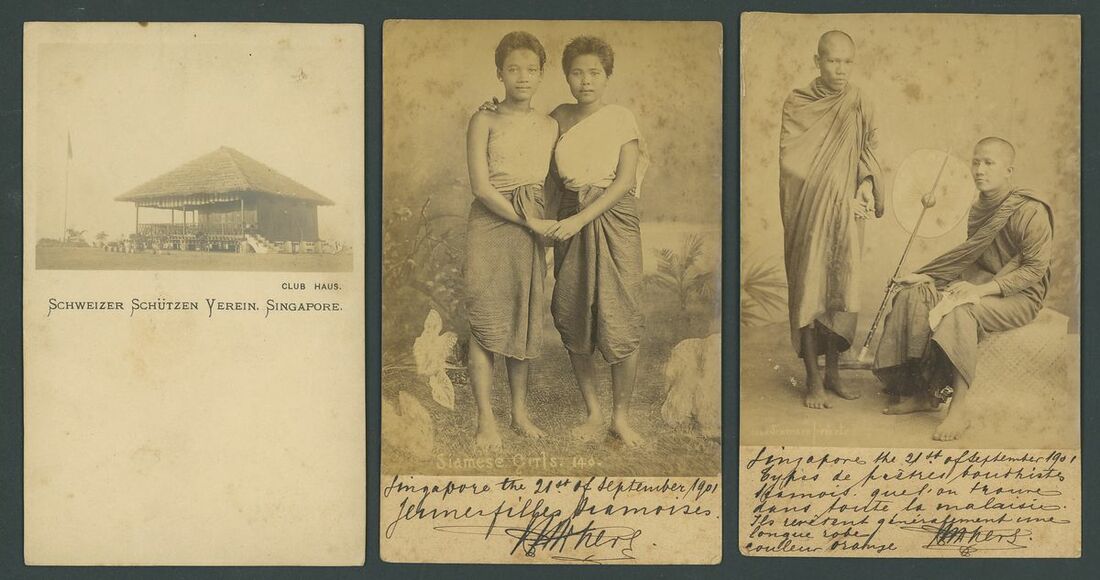 CLUB HAUS.
SCHWEIZER SCHÜTZEN VEREIN, SINGAPORE.
Siamese Girls. 140.
Singapore the 21st of September 1901
Jeunes filles Siamoises.
Siamese Priests
Singapore the 21st of September 1901
Types de prêtres bouddhistes
Siamois. que l'on trouve
dans toute la malaisie.
Ils revêtent généralement une
longue robe
couleur orange